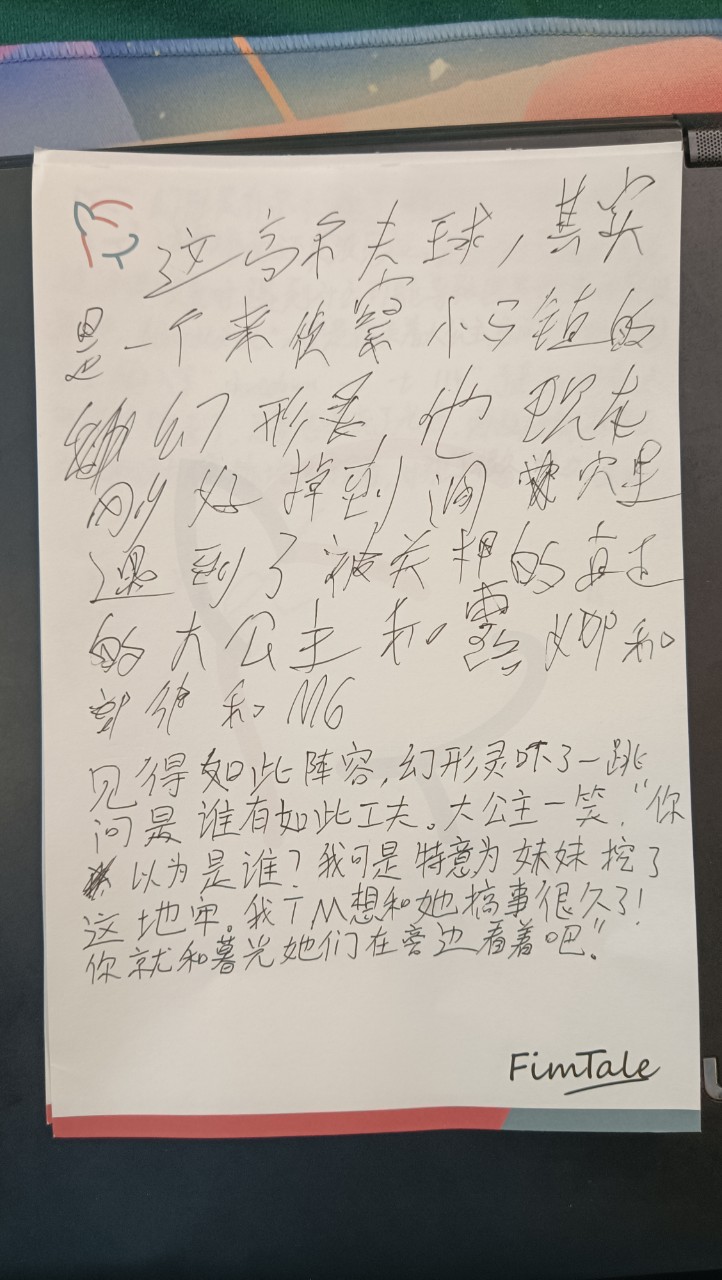 这高尔夫球，其实
是一个来侦察小马镇的
幻形灵，他现在
刚好掉到洞穴里
遇到了被关押的真正
的大公主和露娜和
和M6
见得如此阵容，幻形灵吓了一跳
问是谁有如此工夫。大公主一笑，“你
以为是谁？我可是特意为妹妹挖了
这地牢。我TM想和她搞事很久了！
你就和暮光她们在旁边看着吧。”
FimTale